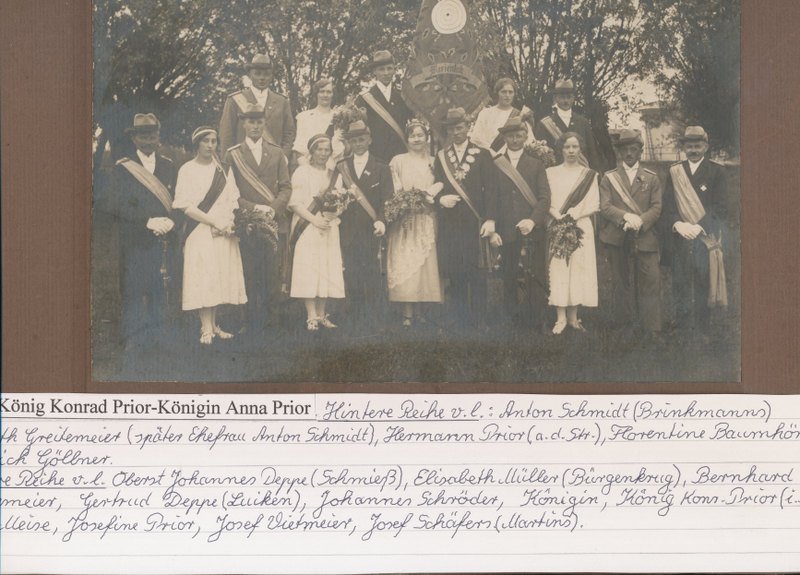 König Konrad Prior-Königin Anna Prior. Hintere Reihe v. l.: Anton Schmidt (Brinkmanns)
th Greitemeier (später Ehefrau Anton Schmidt), Hermann Prior (a. d. Str.), Florentine Baumhö
ich Göllner.
re Reihe v. l. Oberst Johannes Deppe (Schmieß), Elisabeth Müller (Bürgenkrug), Bernhard
meier, Gertrud Deppe (Luiken), Johannes Schröder, Königin, König Konr. Prior (i.
Meise, Josefine Prior, Josef Vietmeier, Josef Schäfers (Martins).